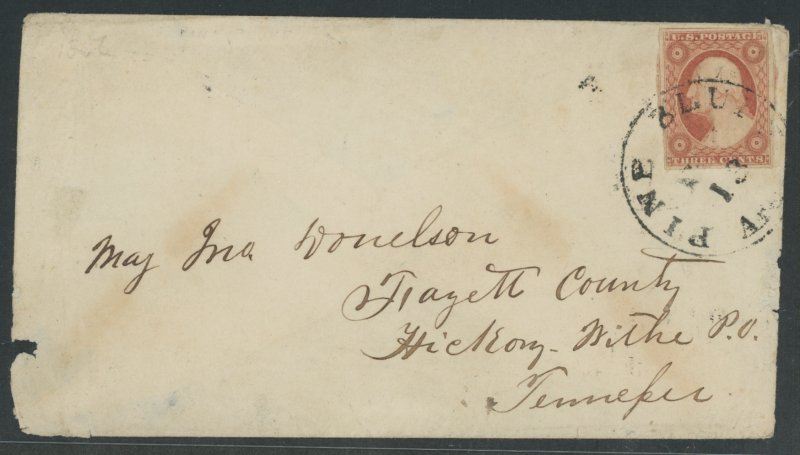 U.S. POSTAGE
THREE CENTS
PINE BLUF
13
Maj Jno Donelson
Fayett County
Hickory-Withe P.O.
Tennessee